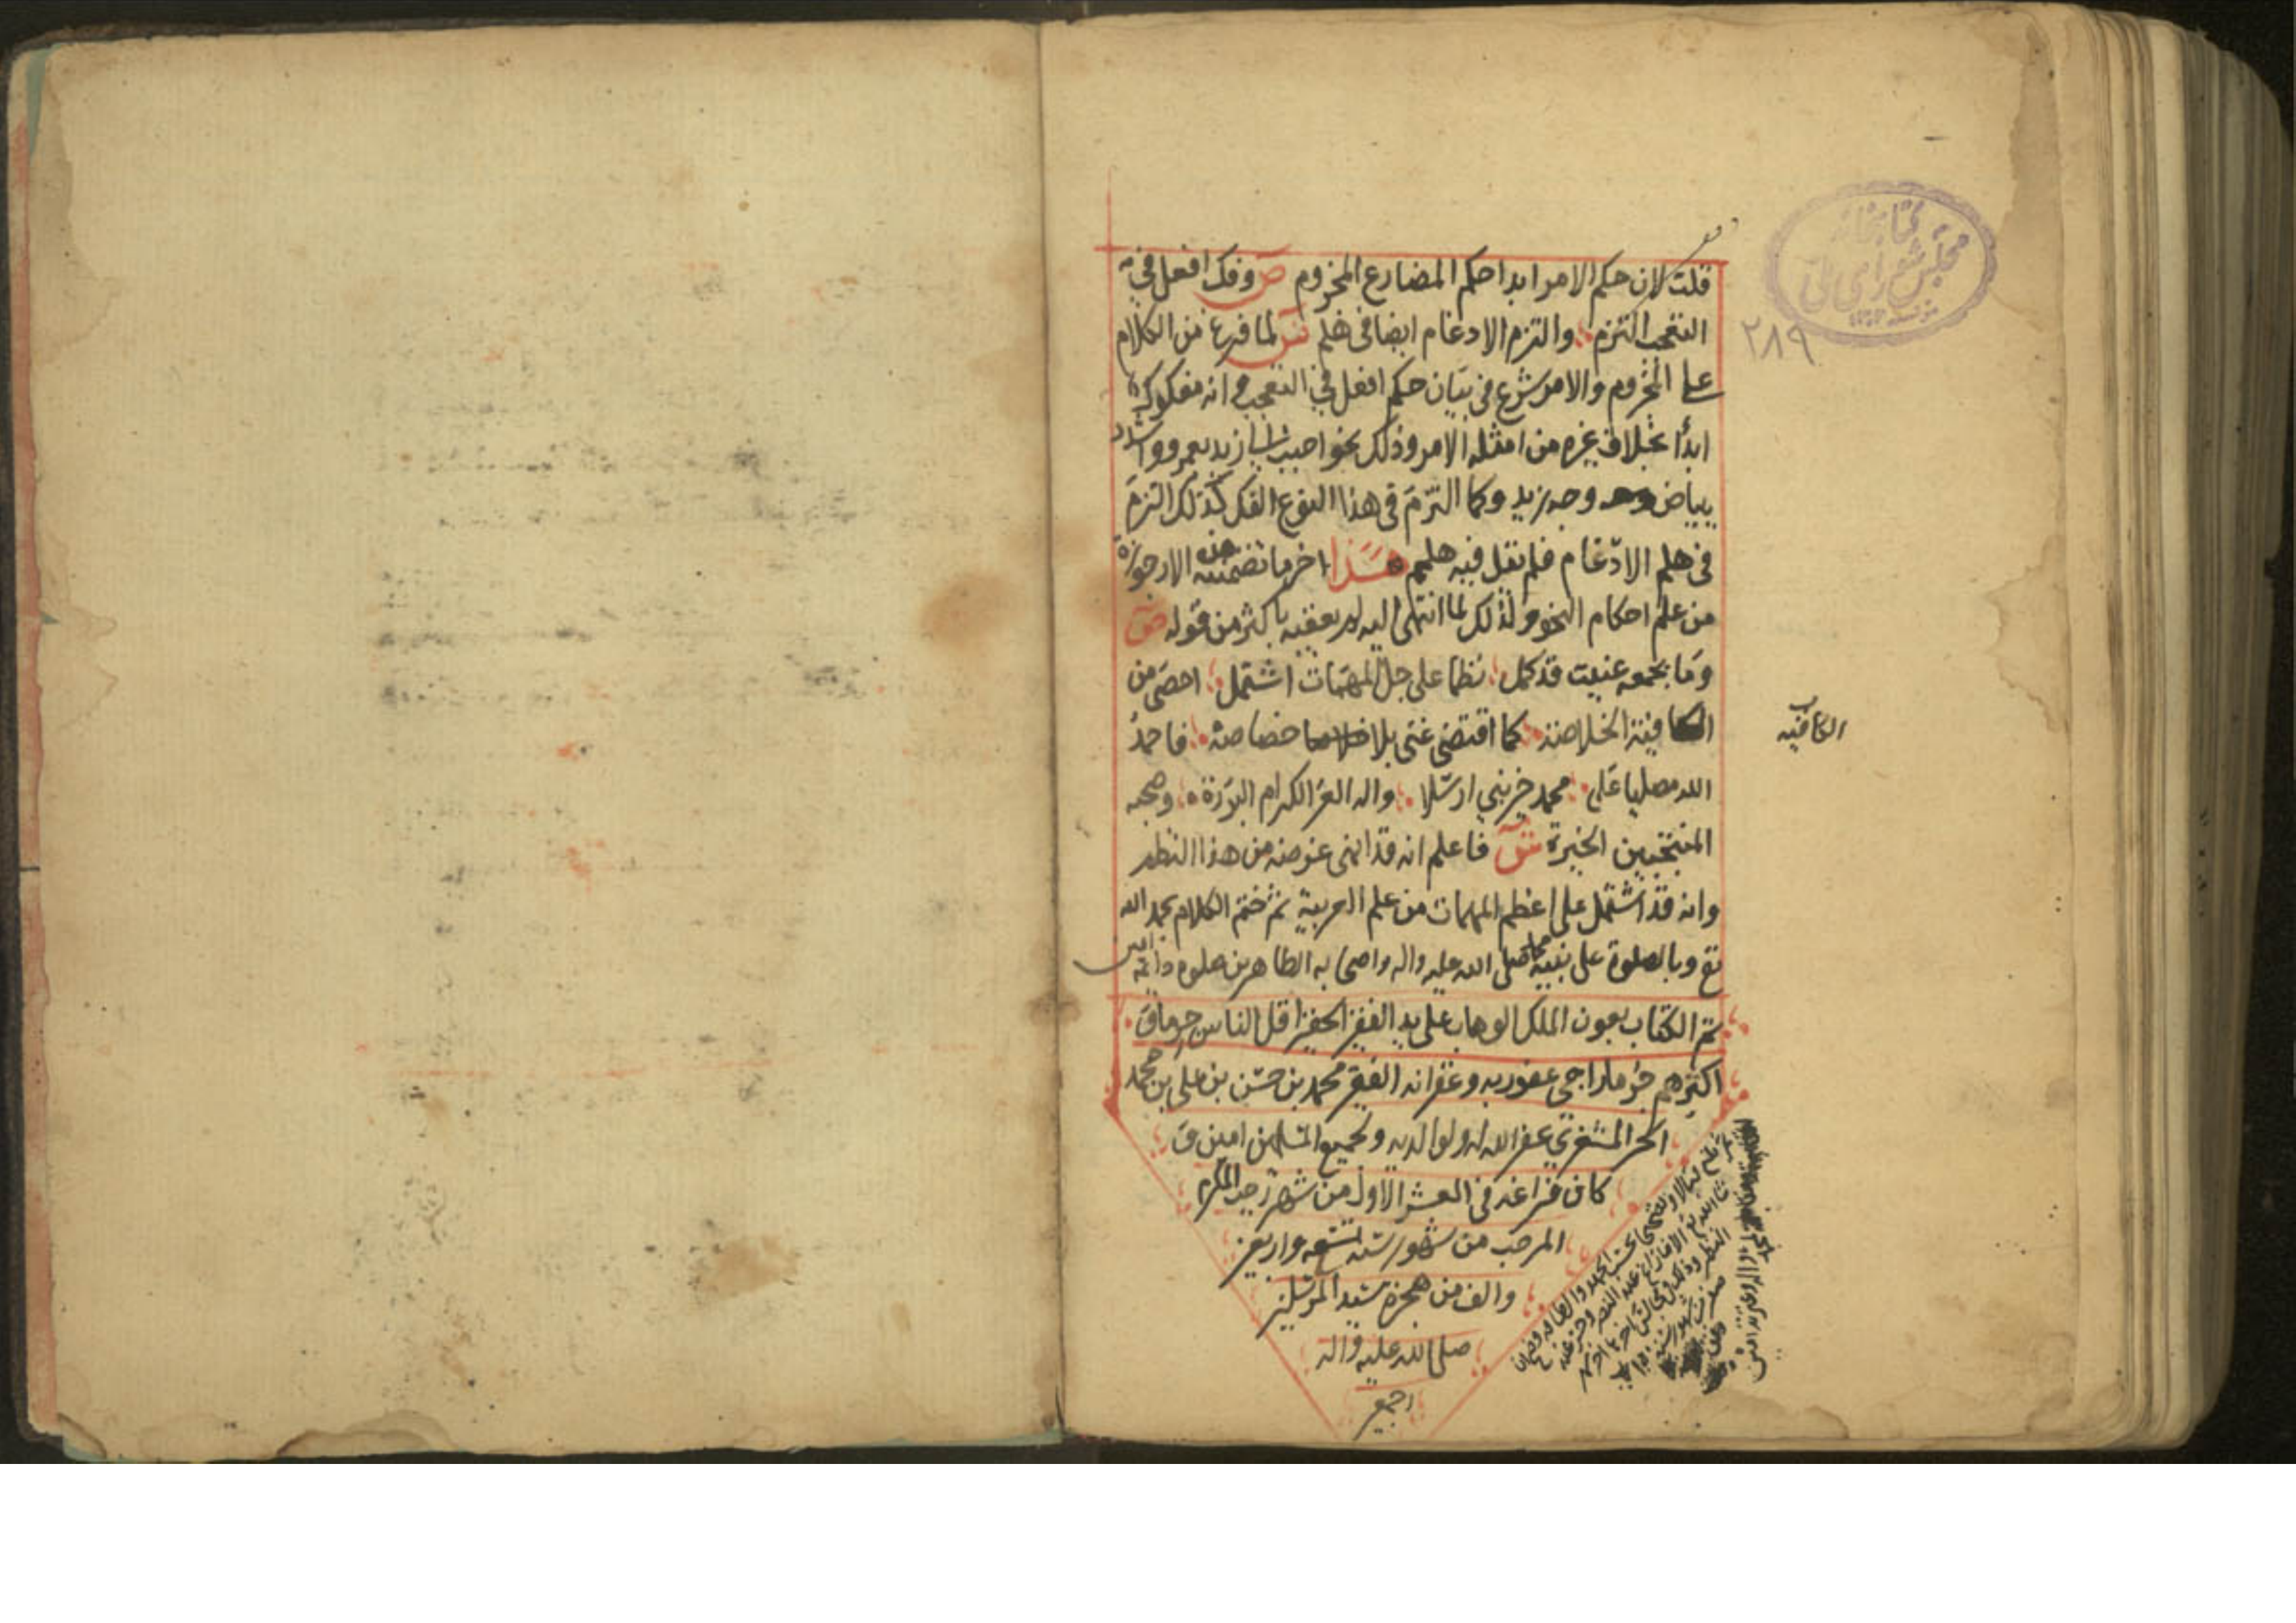 قلت لان حكم الامر ابدا حكم المضارع المجزوم ص وفك افعل في
التعجب التزم والتزم الادغام ايضا في هلم ش لما فرغ من الكلام
على المجزوم والامر شرع في بيان حكم افعل في التعجب وانه مفكوك
ابدا بخلاف غيره من امثله الامر وذلك نحو احبب الي زيد بعمرو واشدد
ببياض وجه زيد وكما التزم في هذا النوع الفك كذلك التزم
في هلم الادغام فلم يقل فيه هلمم هذا اخر ما تضمنته هذه الارجوزة
من علم احكام النحو ولذلك لما انتهى اليه لم يعقبه باكثر من قوله ص
وما بجمعه عنيت قد كمل نظما على جل المهمات اشتمل احصى من
الكافية الخلاصة كما اقتضى غنى بلا خصاصه فاحمد
الله مصليا على محمد خير نبي ارسلا واله الغر الكرام البررة وصحبه
المنتخبين الخيرة ش فاعلم انه قد انهى غرضه من هذا النظم
وانه قد اشتمل على اعظم المهمات من علم العربية ثم ختم الكلام بحمد الله
تع وبالصلوة على نبيه محمد صلى الله عليه واله واصحابه الطاهرين صلوة دائمة امين
تم الكتاب بعون الملك الوهاب على يد الفقير الحقير اقل الناس
اكثرهم جرما راجي عفو ربه وغفرانه الفقير محمد بن حسن بن علي بن محمد
الحر المشغري عفر الله له ولوالديه ولجميع المسلمين امين
كان فراغه في العشر الاول من شهر رجب المكرم
المرجب من شهور سنه تسعه واربعين
والف من هجرة سيد المرسلين
صلى الله عليه واله
اجمعين
الكافيه
كتابخانه
مجلس شوراى ملى
٢٨٩